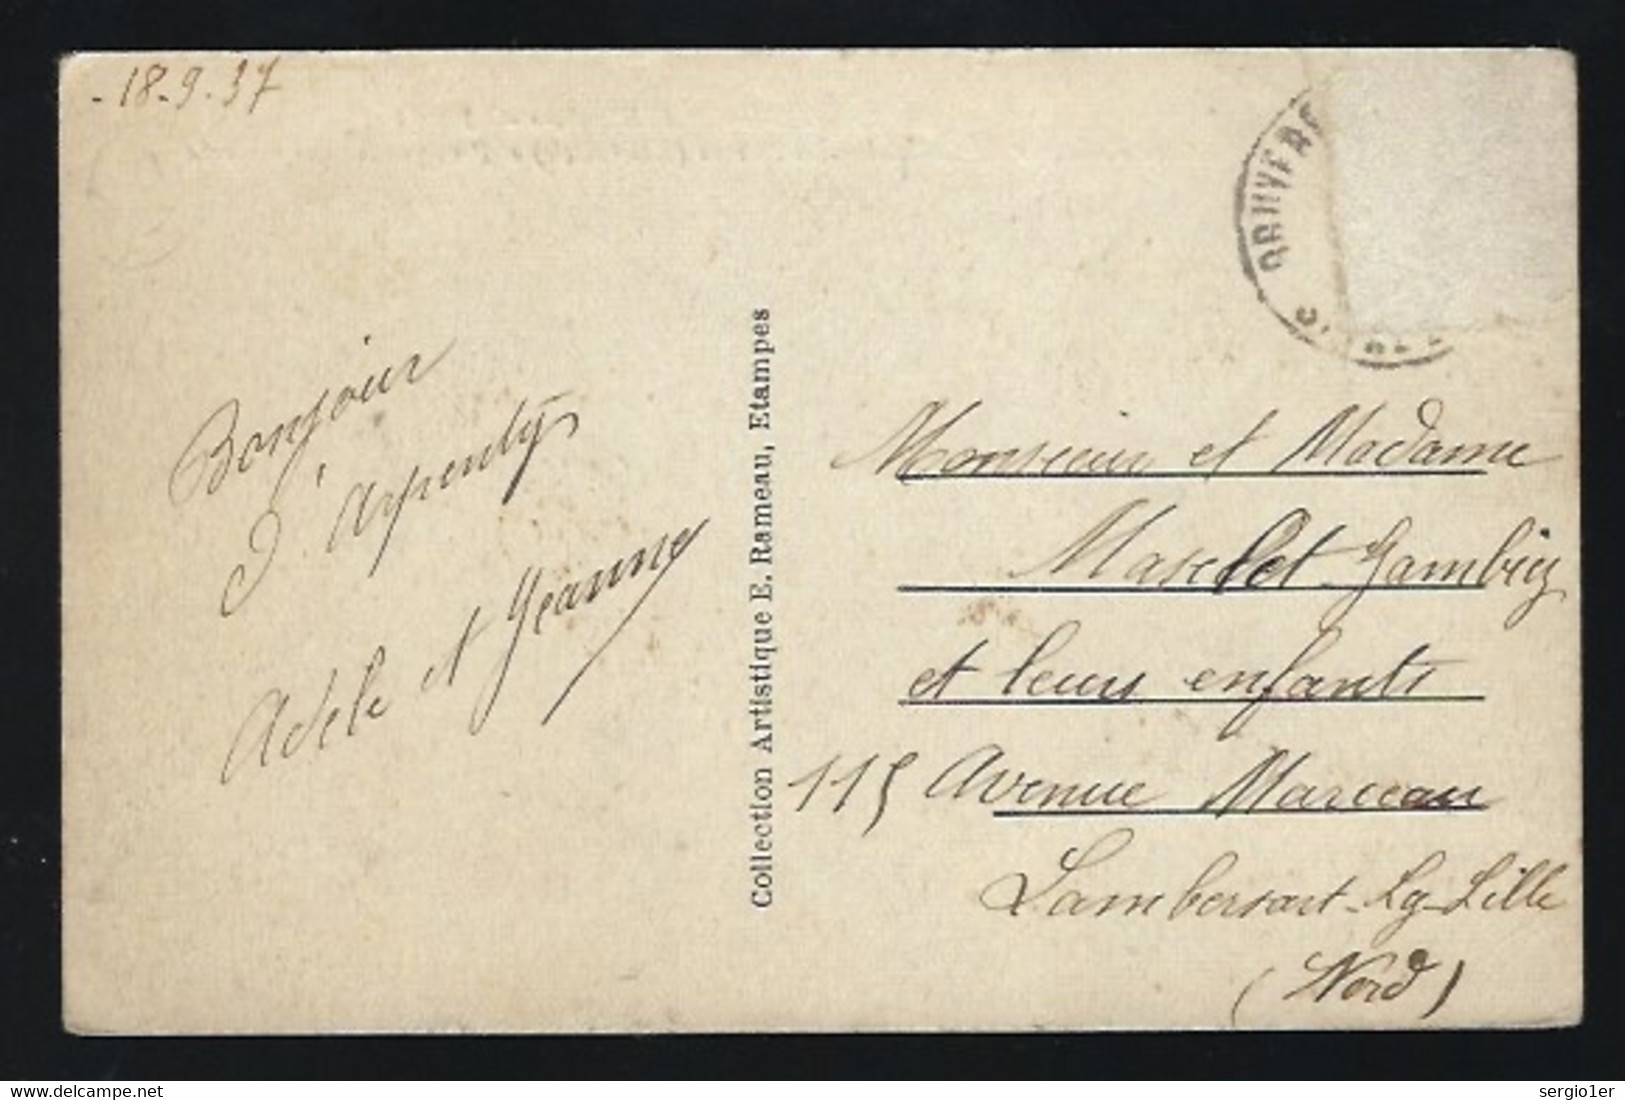 - 18-9-37
Bonjour
d'Arpenty
Adèle et Jeanne
Collection Artistique E. Rameau, Etampes
BRUYERE
Monsieur et Madame
Masclet-Gambiez
et leurs enfants
115 Avenue Marceau
Lambersart-Lg-Lille
(Nord)
www.delcampe.net
sergio1er